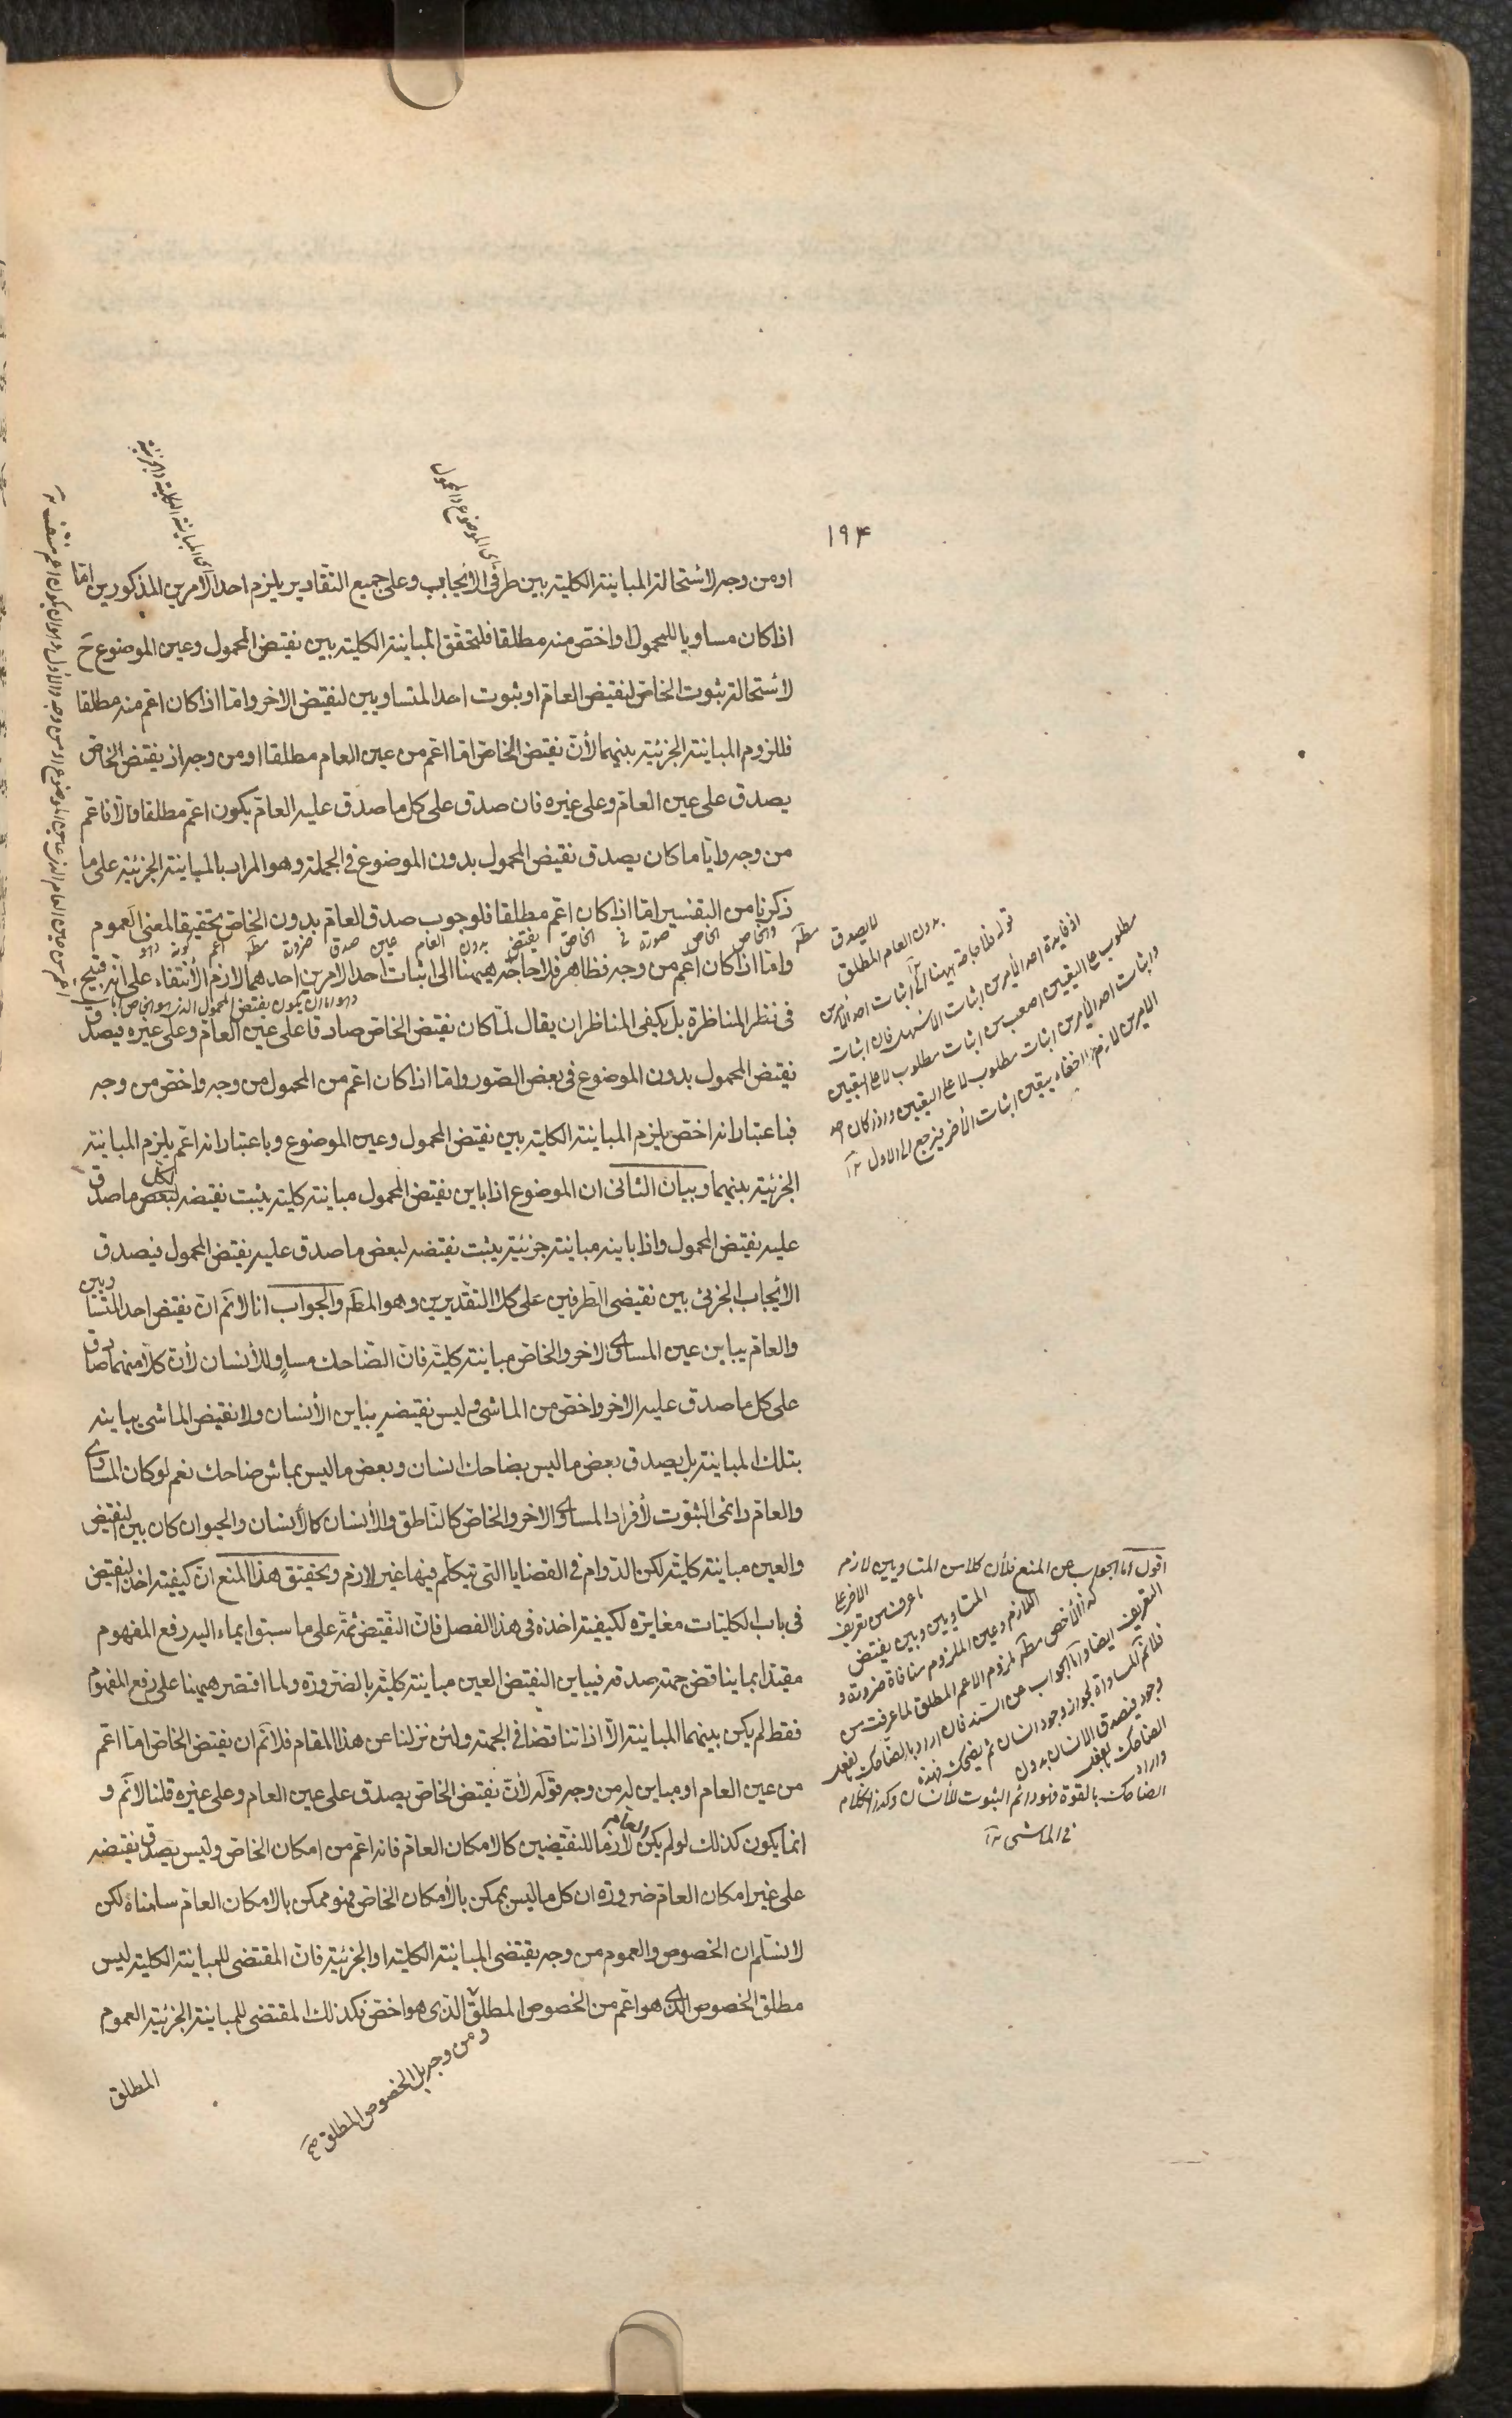 ١٩۴
اى الموضوع والمحمول
اى المباينة الكلية والجزئية
او من وجه لاستحالة المباينة الكلية بين طرفى الايجاب وعلى جميع التقادير يلزم احد الامرين المذكورين اما
اذا كان مساويا للمحمول او اخص منه مطلقا فلتحقق المباينة الكلية بين نقيض المحمول وعين الموضوع ح
لاستحالة ثبوت الخاص لنقيض العام او ثبوت احد المتساويين لنقيض الاخر واما اذا كان اعم منه مطلقا
فللزوم المباينة الجزئية بينهما لأن نقيض الخاص اما اعم من عين العام مطلقا او من وجه اذ نقيض الخاص
يصدق على عين العام وعلى غيره فان صدق على كل ما صدق عليه العام يكون اعم مطلقا والا فاعم
من وجه وايا ما كان يصدق نقيض المحمول بدون الموضوع فى الجملة وهو المراد بالمباينة الجزئية على ما
ذكرنا من التفسير اما اذا كان اعم مطلقا فلوجوب صدق العام بدون الخاص تحقيقا لمعنى العموم
واما اذا كان اعم من وجه فظاهر فلا حاجة ههنا الى اثبات احد الامرين احدهما لازم الانتفاء على انه قبيح
وهو اما ان يكون نقيض المحمول الذى هو الخاص
فى نظر المناظرة بل يكفى المناظر ان يقال لما كان نقيض الخاص صادقا على عين العام وعلى غيره فيصدق
نقيض المحمول بدون الموضوع فى بعض الصور واما اذا كان اعم من المحمول من وجه واخص من وجه
فباعتبار انه اخص يلزم المباينة الكلية بين نقيض المحمول وعين الموضوع وباعتبار انه اعم يلزم المباينة
الجزئية بينهما وبيان الثانى ان الموضوع اذا باين نقيض المحمول مباينة كلية يثبت نقيضه لبعض ما صدق
لكل
عليه نقيض المحمول واذا باينه مباينة جزئية يثبت نقيضه لبعض ما صدق عليه نقيض المحمول فيصدق
الايجاب الجزئى بين نقيضى الطرفين على كلا التقديرين وهو المط والجواب انا لانم ان نقيض احد المتساويين
والعام يباين عين المساوى الاخر والخاص مباينة كلية فان الضاحك مساو للأنسان لأن كلا منهما صادق
على كل ما صدق عليه الاخر واخص من الماشى وليس نقيضه يباين الأنسان ولا نقيض الماشى يباينه
بتلك المباينة بل يصدق بعض ما ليس بضاحك انسان وبعض ما ليس بماش ضاحك نعم لو كان المساوى
والعام دائمى الثبوت لأفراد المساوى الاخر والخاص كالناطق والأنسان كالأنسان والحيوان كان بين النقيض
والعين مباينة كلية لكن الدوام فى القضايا التى تتكلم فيها غير لازم وتحقيق هذا المنع ان كيفية اخذ النقيض
فى باب الكليات مغايرة لكيفية اخذه فى هذا الفصل فان النقيض ثمة على ما سبق ايماء اليه رفع المفهوم
مقيدا بما يناقض جهة صدقه فيباين النقيض العين مباينة كلية بالضرورة ولما اقتصر ههنا على رفع المفهوم
فقط لم يكن بينهما المباينة الا اذا تناقضا فى الجهة ولئن نزلنا عن هذا المقام فلانم ان نقيض الخاص اما اعم
من عين العام او مباين له من وجه قوله لأن نقيض الخاص يصدق على عين العام وعلى غيره قلنا لانم و
انما يكون كذلك لو لم يكن العام لازما للنقيضين كالامكان العام فانه اعم من امكان الخاص وليس يصدق نقيضه
على غير امكان العام ضرورة ان كل ما ليس بممكن بالأمكان الخاص فهو ممكن بالامكان العام سلمناه لكن
لا نسلم ان الخصوص والعموم من وجه يقتضى المباينة الكلية او الجزئية فان المقتضى للمباينة الكلية ليس
مطلق الخصوص الذى هو اعم من الخصوص المطلق الذى هو اخص فكذلك المقتضى للمباينة الجزئية العموم
ومن وجه بل الخصوص المطلق صح
المطلق
لا يصدق
بدون العام المطلق
قوله فلا حاجة ههنا الى اثبات احد الأمرين
اذ فايدة احد الأمرين اثبات الاسهل فان اثبات
مطلوب على اليقين اصعب من اثبات مطلوب لا على اليقين
واثبات احد الأمرين اثبات مطلوب لا على اليقين واذا كان احد
الامرين لازم الانتفاء يتعين اثبات الأخر فيرجع الى الاول
اقول اما الجواب عن المنع فلأن كلا من المتساويين لازم
الاخر على ما عرفت من تعريف
المتساويين وبين نقيض
اللازم وعين الملزوم منافاة ضرورة و
كذا الأخص مط ملزوم الاعم المطلق لما عرفت من
التعريف ايضا واما الجواب عن السند فان اراد بالضاحك بالفعل
فلانم المساواة لجواز وجود انسان لم يضحك فهذه
وجود فيصدق الانسان بدون
الضاحك بالفعل
واراد
الضاحك بالقوة فهو دائم الثبوت للأنسان وكذا الكلام
فى الماشى